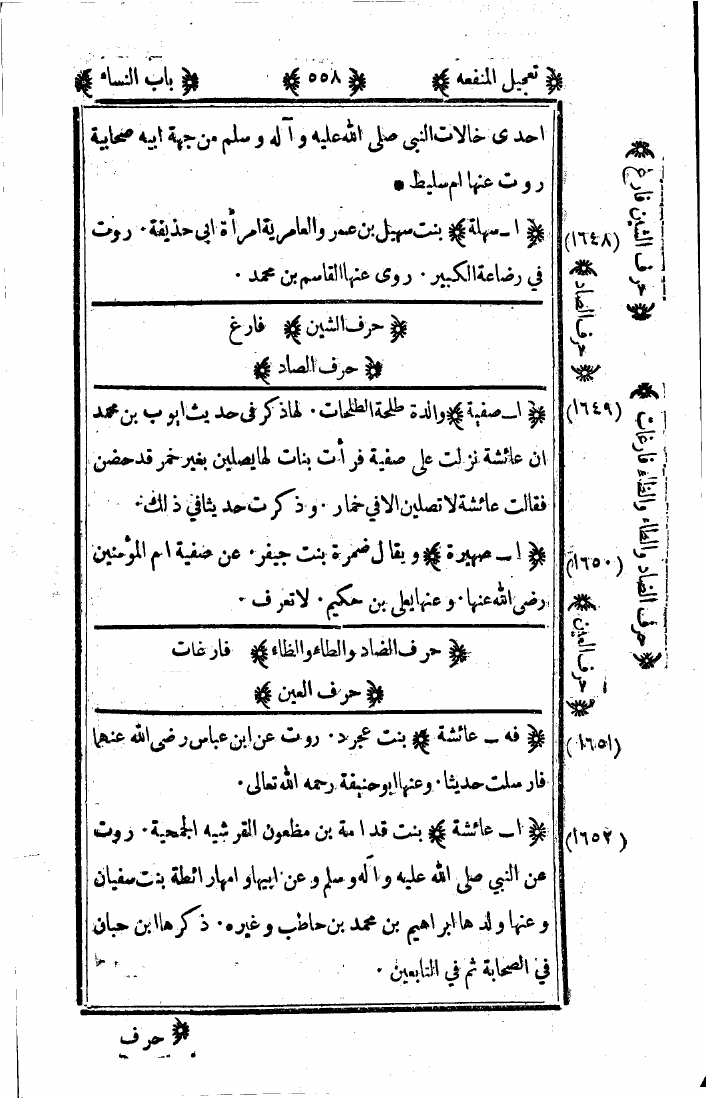 ﴿ تعجيل المنفعه ﴾ ﴿ ٥٥٨ ﴾ ﴿ باب النساء ﴾
احدى خالات النبى صلى الله عليه وآله وسلم من جهة ابيه صحابية
روت عنها ام سليط •
(١٦٤٨) ﴿ ا - سهلة ﴾ بنت سهيل بن عمرو العامرية امرأة ابى حذيفة . روت
فى رضاعة الكبير . روى عنها القاسم بن محمد .
﴿ حرف الشين ﴾ فارغ
﴿ حرف الصاد ﴾
(١٦٤٩) ﴿ ا - صفية ﴾ والدة طلحة الطلحات . لها ذكر فى حديث ايوب بن محمد
ان عائشة نزلت على صفية فرأت بنات لها يصلين بغير خمر قد حضن
فقالت عائشة لا تصلين الا فى خمار . وذكرت حديثا فى ذلك .
(١٦٥٠) ﴿ ا - صهيرة ﴾ ويقال ضمرة بنت جيفر . عن صفية ام المؤمنين
رضى الله عنها . وعنها يعلى بن حكيم . لا تعرف .
﴿ حرف الضاد والطاء والظاء ﴾ فارغات
﴿ حرف العين ﴾
(١٦٥١) ﴿ فه - عائشة ﴾ بنت عجرد . روت عن ابن عباس رضى الله عنهما
فارسلت حديثا . وعنها ابوحنيفة رحمه الله تعالى .
(١٦٥٢) ﴿ ا - عائشة ﴾ بنت قدامة بن مظعون القرشيه الجمحية . روت
عن النبي صلى الله عليه وآله وسلم وعن ابيها وامها رائطة بنت سفيان
وعنها ولدها ابراهيم بن محمد بن حاطب وغيره . ذكرها ابن حبان
فى الصحابة ثم فى التابعين .
﴿ حرف
﴿ حرف الشين فارغ ﴾
﴿ حرف الصاد ﴾
﴿ حرف الضاد والطاء والظاء فارغات ﴾
﴿ حرف العين ﴾